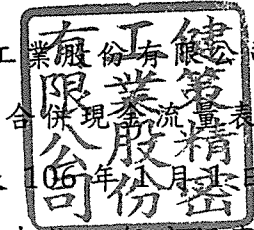 工業股份有限公
合併現金流量表
106年1月1日
健策精密
工業股份
有限公司